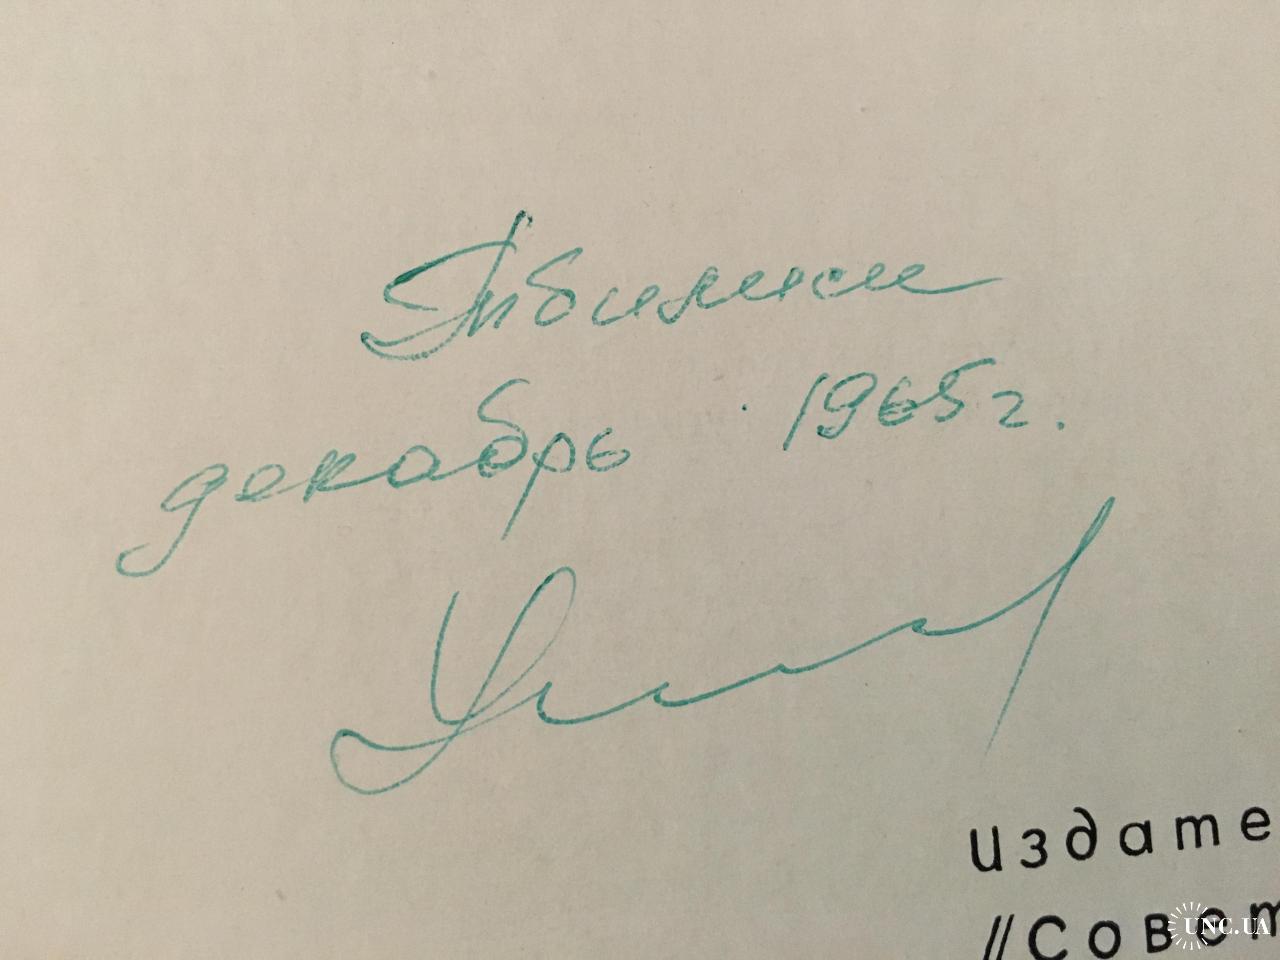 Тбилиси
декабрь 1965 г.
издате
"Совет
UNC.UA